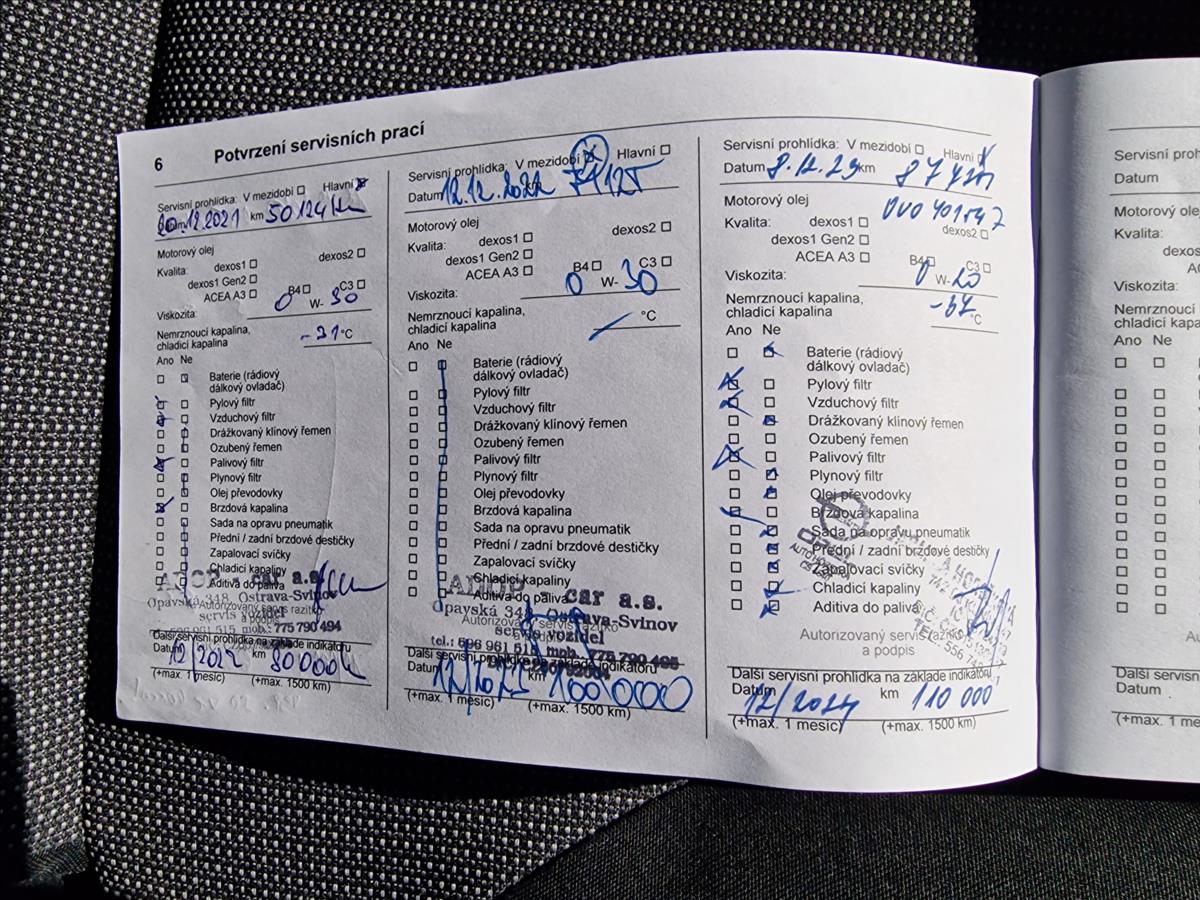 6 Potvrzení servisních prací
Servisní prohlídka: V mezidobí Hlavní
20.12.2021 km 50124 km
Motorový olej
Kvalita: dexos1 dexos2
dexos1 Gen2
ACEA A3 B4 C3
Viskozita: 0 W- 30
Nemrznoucí kapalina,
chladicí kapalina -31 °C
Ano Ne
Baterie (rádiový
dálkový ovladač)
Pylový filtr
Vzduchový filtr
Drážkovaný klínový řemen
Ozubený řemen
Palivový filtr
Plynový filtr
Olej převodovky
Brzdová kapalina
Sada na opravu pneumatik
Přední / zadní brzdové destičky
Zapalovací svíčky
Chladicí kapaliny
Aditiva do paliva
car a.s.
Opavská 348, Ostrava-Svinov
Autorizovaný servis razítko
servis vozidel
a podpis
596 961 515 mob.: 775 790 494
Další servisní prohlídka na základě indikátoru
Datum 12/2022 km 80000
(+max. 1 měsíc) (+max. 1500 km)
Servisní prohlídka: V mezidobí Hlavní
Datum 12.12.2022 km
Motorový olej
Kvalita: dexos1 dexos2
dexos1 Gen2
ACEA A3 B4 C3
Viskozita: 0 W- 30
Nemrznoucí kapalina,
chladicí kapalina °C
Ano Ne
Baterie (rádiový
dálkový ovladač)
Pylový filtr
Vzduchový filtr
Drážkovaný klínový řemen
Ozubený řemen
Palivový filtr
Plynový filtr
Olej převodovky
Brzdová kapalina
Sada na opravu pneumatik
Přední / zadní brzdové destičky
Zapalovací svíčky
Chladicí kapaliny
Aditiva do paliva
car a.s.
Opavská 348, Ostrava-Svinov
Autorizovaný servis razítko
servis vozidel
tel.: 596 961 515, mob. 775 790 495
Další servisní prohlídka na základě indikátoru
Datum 12/2023 km 100000
(+max. 1 měsíc) (+max. 1500 km)
Servisní prohlídka: V mezidobí Hlavní
Datum 8.12.23 km
Motorový olej
Kvalita: dexos1 dexos2
dexos1 Gen2
ACEA A3 B4 C3
Viskozita: 0 W- 20
Nemrznoucí kapalina,
chladicí kapalina -37 °C
Ano Ne
Baterie (rádiový
dálkový ovladač)
Pylový filtr
Vzduchový filtr
Drážkovaný klínový řemen
Ozubený řemen
Palivový filtr
Plynový filtr
Olej převodovky
Brzdová kapalina
Sada na opravu pneumatik
Přední / zadní brzdové destičky
Zapalovací svíčky
Chladicí kapaliny
Aditiva do paliva
Autorizovaný servis razítko
a podpis
Další servisní prohlídka na základě indikátoru
Datum 12/2024 km 110 000
(+max. 1 měsíc) (+max. 1500 km)
Servisní pro
Datum
Motorový ole
Kvalita:
Viskozita:
Nemrznoucí k
chladicí kapalin
Ano Ne
Další servisní
Datum
(+max. 1 mě